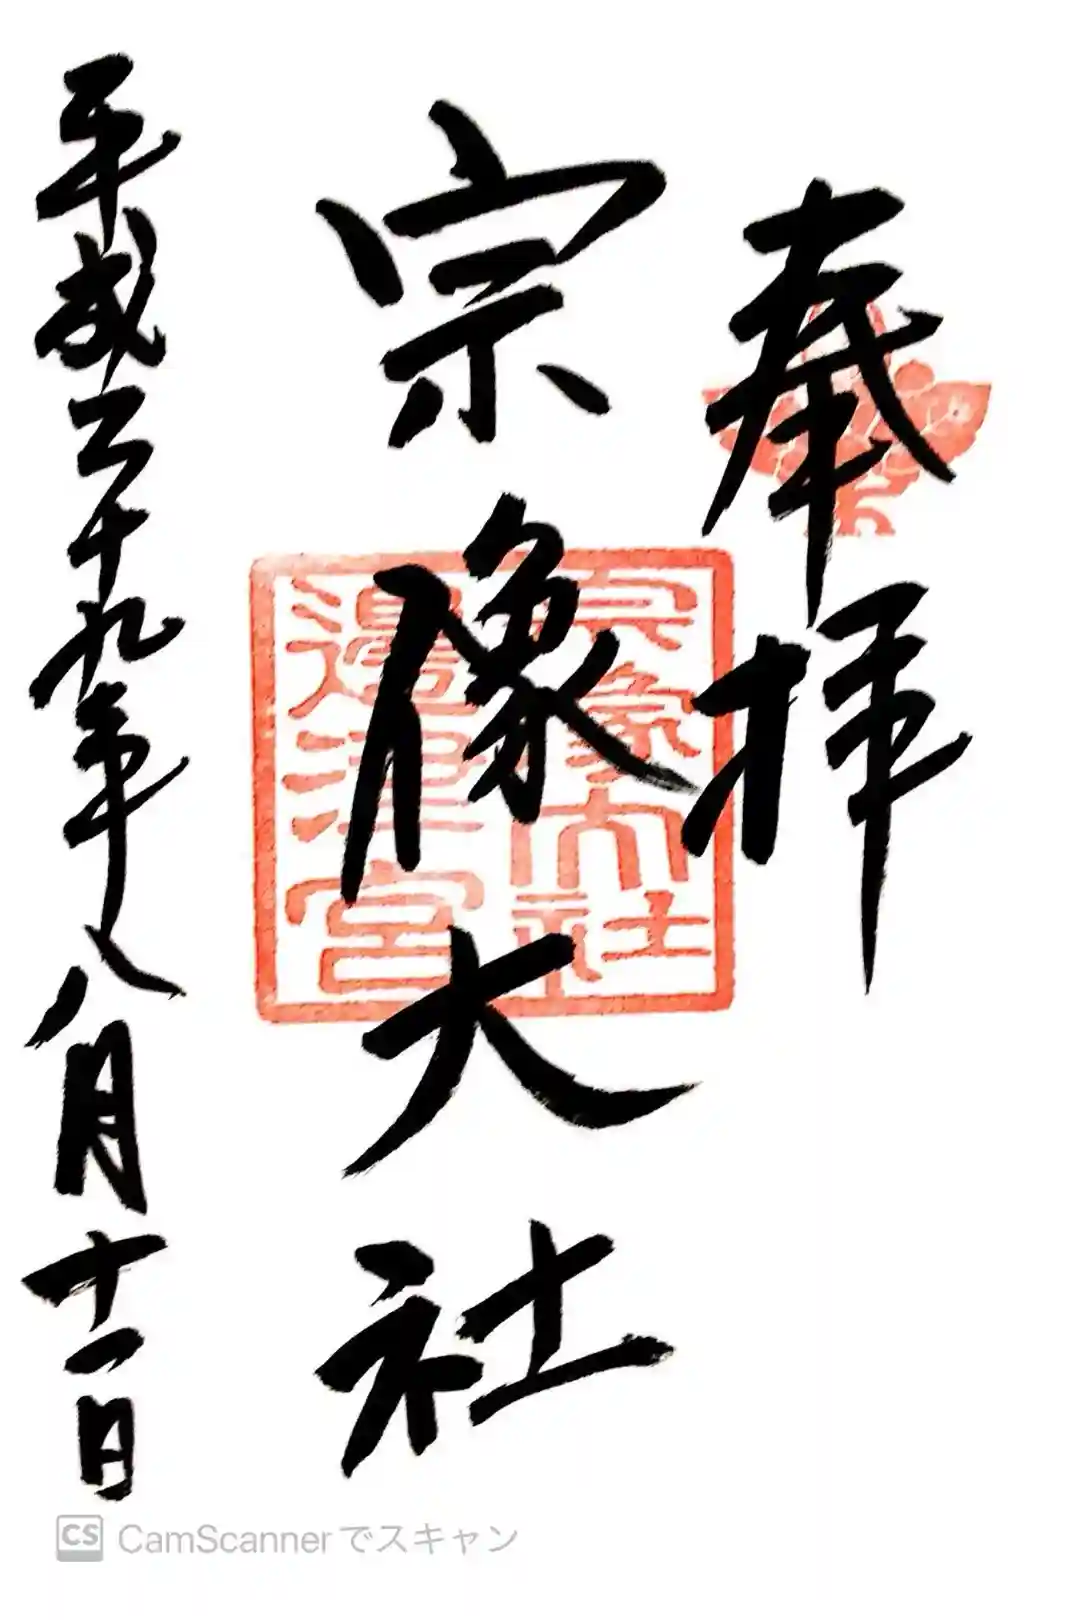 奉拝
宗像大社
宗像大社
邊津宮
平成二十九年八月十一日
CS CamScannerでスキャン